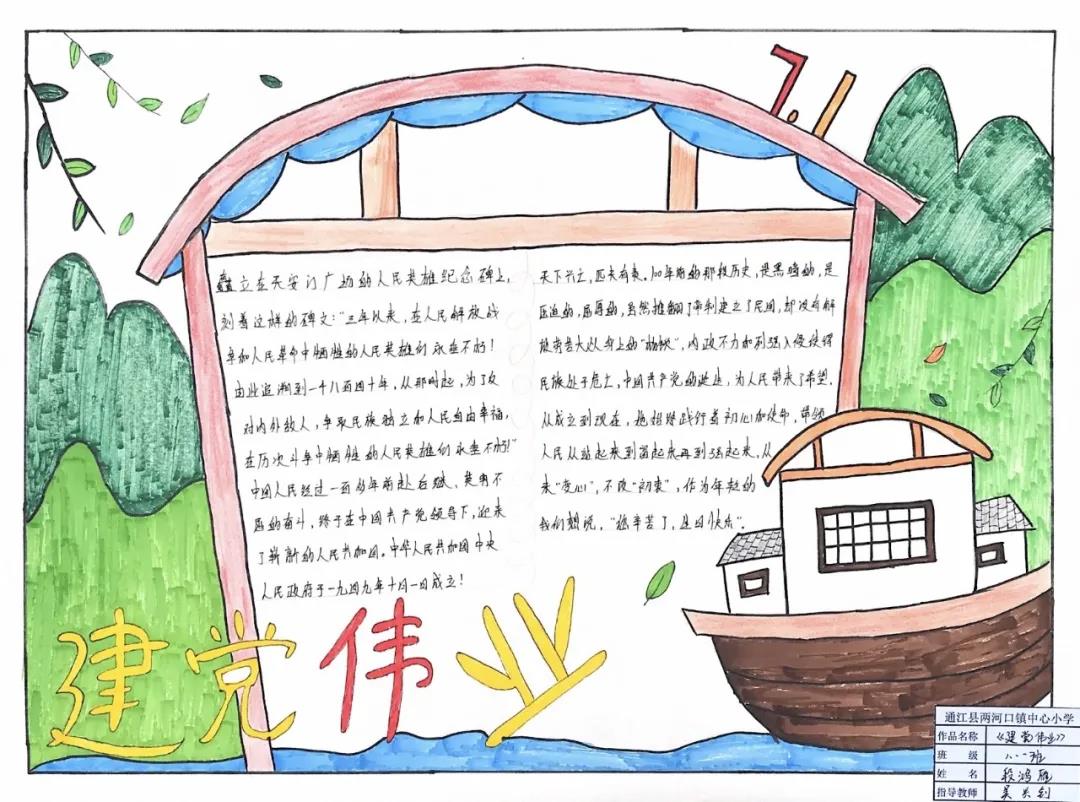 7.1
矗立在天安门广场的人民英雄纪念碑上,
刻着这样的碑文:"三年以来,在人民解放战
争和人民革命中牺牲的人民英雄们永垂不朽!
由此追溯到一千八百四十年,从那时起,为了反
对内外敌人,争取民族独立和人民自由幸福,
在历次斗争中牺牲的人民英雄们永垂不朽!"
中国人民经过一百多年前赴后继、英勇不
屈的奋斗,终于在中国共产党领导下,迎来
了崭新的人民共和国。中华人民共和国中央
人民政府于一九四九年十月一日成立!
天下兴亡,匹夫有责。100年前的那段历史,是黑暗的,是
压迫的,屈辱的,虽然推翻了帝制建立了民国,却没有解
放劳苦大众身上的"枷锁",内政不力和列强入侵使得
民族处于危亡,中国共产党的诞生,为人民带来了希望。
从成立到现在,他始终践行着初心和使命,带领
人民从站起来到富起来再到强起来,从
未"变心",不改"初衷",作为年轻的
我们想说,"您辛苦了,生日快乐"。
建党伟业
通江县两河口镇中心小学
作品名称 《建党伟业》
班 级 八.一班
姓 名 段鸿雁
指导教师 吴